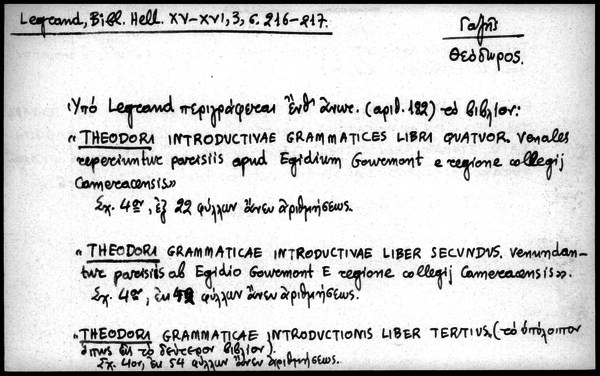 Legrand, Bibl. Hell. XV-XVI, 3, σ. 216-217.
Γαζῆς
Θεόδωρος.
Ὑπό Legrand περιγράφεται ἔνθ' ἄνωτ. (ἀριθ. 182) τό βιβλίον:
« THEODORI INTRODUCTIVAE GRAMMATICES LIBRI QUATUOR. Venales
reperiuntur parisiis apud Egidium Gourmont e regione collegij
Cameracensis»
Σχ. 4ον, ἐξ 22 φύλλων ἄνευ ἀριθμήσεως.
« THEODORI GRAMMATICAE INTRODUCTIVAE LIBER SECVNDVS. Venundan-
tur parisiis ab Egidio Gourmont E regione collegij Cameracensis».
Σχ. 4ον, ἐκ φύλλων ἄνευ ἀριθμήσεως.
«THEODORI GRAMMATICAE INTRODUCTIONIS LIBER TERTIUS, (τό ὑπόλοιπον
ὅπως εἰς τό δεύτερον βιβλίον).
Σχ. 4ον, ἐκ 54 φύλλων ἄνευ ἀριθμήσεως.